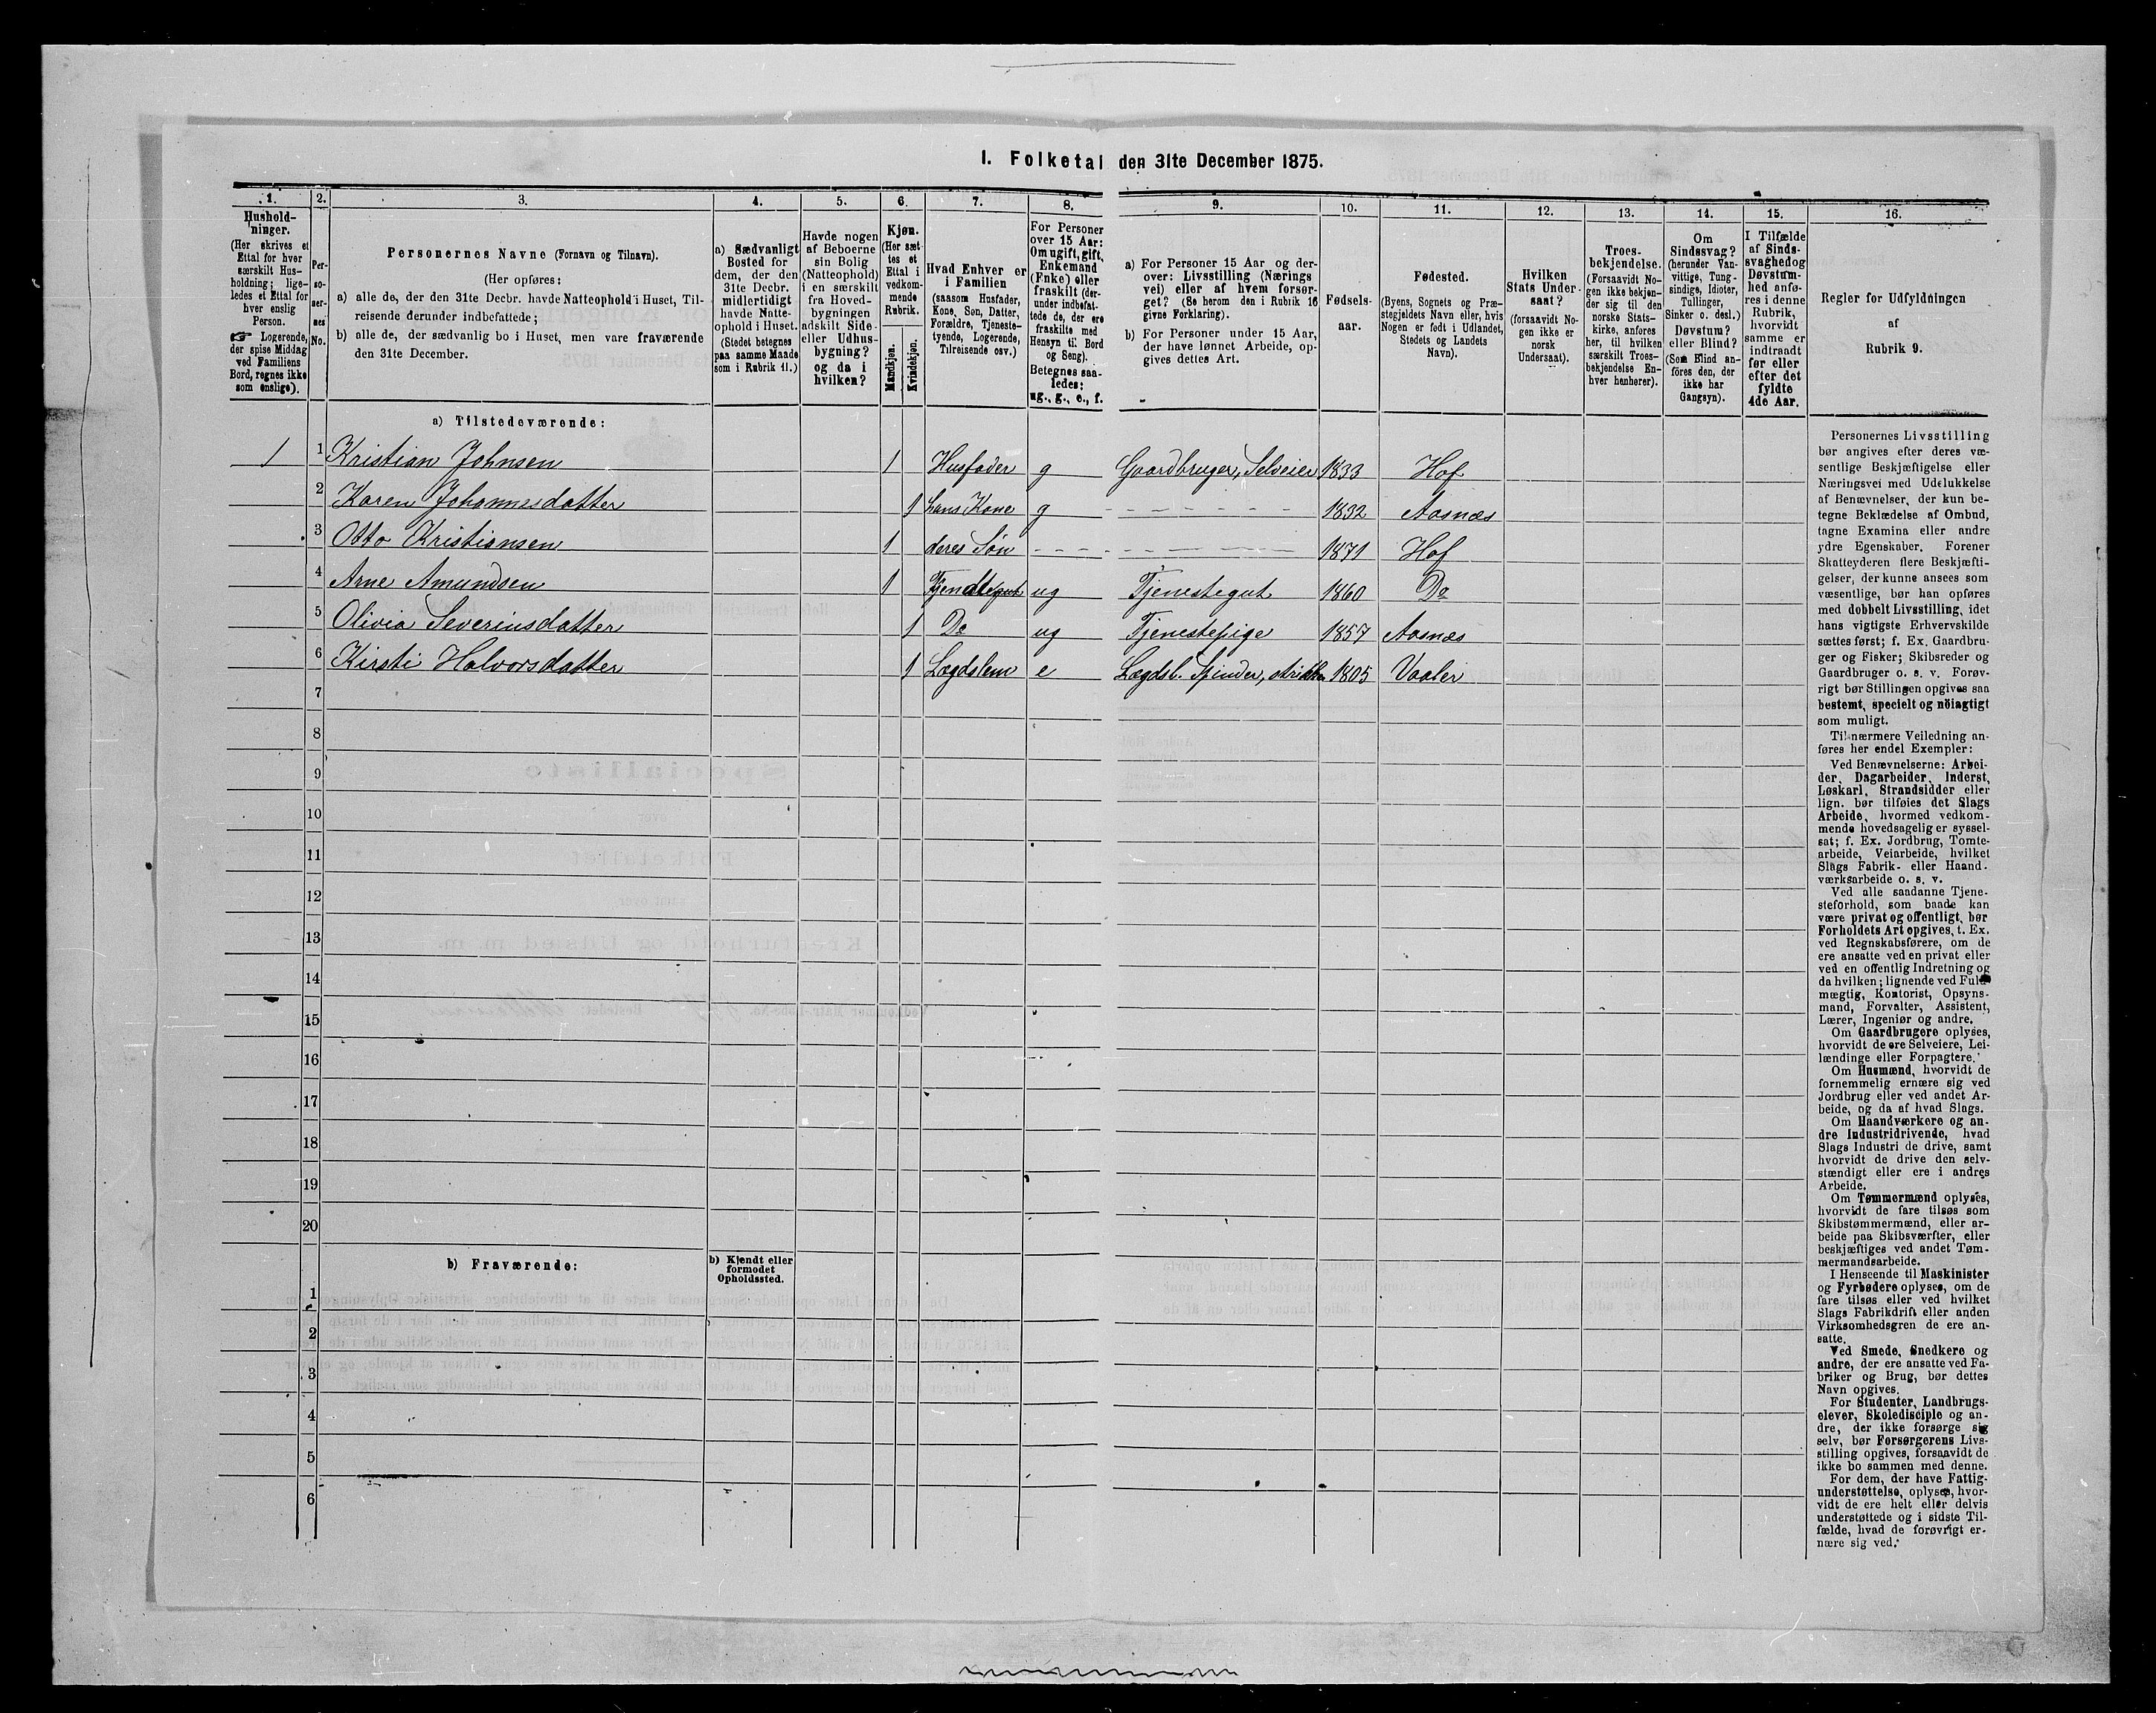 I. Folketal den 31te December 1875.
1.
Hushold-
ninger.
(Her skrives et
Ettal for hver
særskilt Hus-
holdning; lige-
ledes et Ettal for
hver enslig
Person.
☞ Logerende,
der spise Middag
ved Familiens
Bord, regnes ikke
som enslige).
2.
Per-
so-
ner-
nes
No.
3.
Personernes Navne (Fornavn og Tilnavn).
(Her opføres:
a) alle de, der den 31te Decbr. havde Natteophold i Huset, Til-
reisende derunder indbefattede;
b) alle de, der sædvanlig bo i Huset, men vare fraværende
den 31te December.
4.
a) Sædvanligt
Bosted for
dem, der den
31te Decbr.
midlertidigt
havde Natte-
ophold i Huset.
(Stedet betegnes
paa samme Maade
som i Rubrik 11.)
5.
Havde nogen
af Beboerne
sin Bolig
(Natteophold)
i en særskilt
fra Hoved-
bygningen
adskilt Side-
eller Udhus-
bygning?
og da i
hvilken?
6.
Kjøn.
(Her sæt-
tes et
Ettal i
vedkom-
mende
Rubrik.
Mandkjøn.
Kvindekjøn.
7.
Hvad Enhver er
i Familien
(saasom Husfader,
Kone, Søn, Datter,
Forældre, Tjeneste-
tyende, Logerende,
Tilreisende osv.)
8.
For Personer
over 15 Aar:
Om ugift, gift,
Enkemand
(Enke) eller
fraskilt (der-
under indbefat-
tede de, der ere
fraskilte med
Hensyn til Bord
og Seng).
Betegnes saa-
ledes:
ug., g., e., f.
9.
a) For Personer 15 Aar og der-
over: Livsstilling (Nærings
vei) eller af hvem forsør-
get? (Se herom den i Rubrik 16
givne Forklaring).
b) For Personer under 15 Aar,
der have lønnet Arbeide, op-
gives dettes Art.
10.
Fødsels-
aar.
11.
Fødested.
(Byens, Sognets og Præ-
stegjeldets Navn eller, hvis
Nogen er født i Udlandet,
Stedets og Landets
Navn).
12.
Hvilken
Stats Under-
saat?
(forsaavidt No-
gen ikke er
norsk
Undersaat).
13.
Troes-
bekjendelse.
(Forsaavidt No-
gen ikke bekjen-
der sig til den
norske Stats-
kirke, anføres
her, til hvilken
særskilt Troes-
bekjendelse En-
hver henhører).
14.
Om
Sindssvag?
(herunder Van-
vittige, Tung-
sindige, Idioter,
Tullinger,
Sinker o. desl.)
Døvstum?
eller Blind?
(Som Blind an-
føres den, der
ikke har
Gangsyn).
15.
I Tilfælde
af Sinds-
svaghed og
Døvstum-
hed anfø-
res i denne
Rubrik,
hvorvidt
samme er
indtraadt
før eller
efter det
fyldte
4de Aar.
16.
Regler for Udfyldningen
af
Rubrik 9.
a) Tilstedeværende:
1 1 Kristian Johnsen 1 Husfader g Gaardbruger, Selveier 1833 Hof
2 Karen Johannesdatter 1 hans Kone g 1832 Aasnæs
3 Otto Kristiansen 1 deres Søn 1871 Hof
4 Arne Amundsen 1 ug Tjenestegut 1860 Do
5 Olivia Severinsdatter 1 Do ug Tjenestepige 1857 Aasnæs
6 Kirsti Halvorsdatter 1 Lægdslem e Lægdsl. Spinder, strikker 1805 Vaaler
7
8
9
10
11
12
13
14
15
16
17
18
19
20
b) Fraværende:
b) Kjendt eller
formodet
Opholdssted.
1
2
3
4
5
6
Personernes Livsstilling
bør angives efter deres væ-
sentlige Beskjæftigelse eller
Næringsvei med Udelukkelse
af Benævnelser, der kun be-
tegne Beklædelse af Ombud,
tagne Examina eller andre
ydre Egenskaber. Forener
Skatteyderen flere Beskjæfti-
gelser, der kunne ansees som
væsentlige, bør han opføres
med dobbelt Livsstilling, idet
hans vigtigste Erhvervskilde
sættes først; f. Ex. Gaardbru-
ger og Fisker; Skibsreder og
Gaardbruger o. s. v. Forøv-
rigt bør Stillingen opgives saa
bestemt, specielt og nöiagtigt
som muligt.
Til nærmere Veiledning an-
føres her endel Exempler:
Ved Benævnelserne: Arbei-
der, Dagarbeider, Inderst,
Løskarl, Strandsidder eller
lign. bør tilføies det Slags
Arbeide, hvormed vedkom-
mende hovedsagelig er syssel-
sat; f. Ex. Jordbrug, Tomte-
arbeide, Veiarbeide, hvilket
Slags Fabrik- eller Haand-
værksarbeide o. s. v.
Ved alle saadanne Tjene-
steforhold, som baade kan
være privat og offentligt, bør
Forholdets Art opgives, t. Ex.
ved Regnskabsførere, om de
ere ansatte ved en privat eller
ved en offentlig Indretning og
da hvilken; lignende ved Fuld-
mægtig, Kontorist, Opsyns-
mand, Forvalter, Assistent,
Lærer, Ingeniør og andre.
Om Gaardbrugere oplyses,
hvorvidt de ere Selveiere, Lei-
lændinge eller Forpagtere.
Om Husmænd, hvorvidt de
fornemmelig ernære sig ved
Jordbrug eller ved andet Ar-
beide, og da af hvad Slags.
Om Haandværkere og an-
dre Industridrivende, hvad
Slags Industri de drive, samt
hvorvidt de drive den selv-
stændigt eller ere i andres
Arbeide.
Om Tømmermænd oplyses,
hvorvidt de fare tilsøs som
Skibstømmermænd, eller ar-
beide paa Skibsværfter, eller
beskjæftiges ved andet Tøm-
mermandsarbeide.
I Henseende til Maskinister
og Fyrbødere oplyses, om de
fare tilsøs eller ved hvilket
Slags Fabrikdrift eller anden
Virksomhedsgren de ere an-
satte.
Ved Smede, Snedkere og
andre, der ere ansatte ved Fa-
briker og Brug, bør dettes
Navn opgives.
For Studenter, Landbrugs-
elever, Skoledisciple og an-
dre, der ikke forsørge sig
selv, bør Forsørgerens Livs-
stilling opgives, forsaavidt de
ikke bo sammen med denne.
For dem, der have Fattig-
understøttelse, oplyses, hvor-
vidt de ere helt eller delvis
understøttede og i sidste Til-
fælde, hvad de forøvrigt er-
nære sig ved.